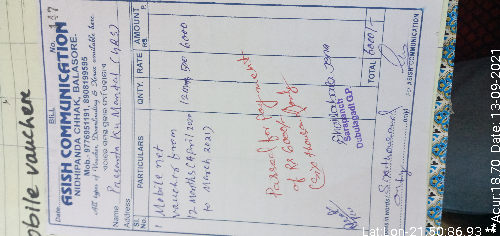 Mobile vaucher
BILL
Date No. 137
ASISH COMMUNICATION
NIDHIPANDA CHHAK, BALASORE.
Mob.- 9776951191, 8908199595
All types of Voucher, Downloading & Xerox available here.
Name Prasanta Ku Mantri (GRS)
Address
Sl. No. PARTICULARS QNTY. RATE AMOUNT
RS. P.
1 Mobile net 12 mon 500 6000
vaucher from
12 Months (April 2020
to March 2021)
Passed for payment
of Rs 6000/-
(Six thousand) only
Sarapanch
Daulagad G.P.
TOTAL 6000/-
Six thousand
only
For ASISH COMMUNICATION
Lat Lon-21.50:86.93
***Agri-18.70 Date: 13-09-2021